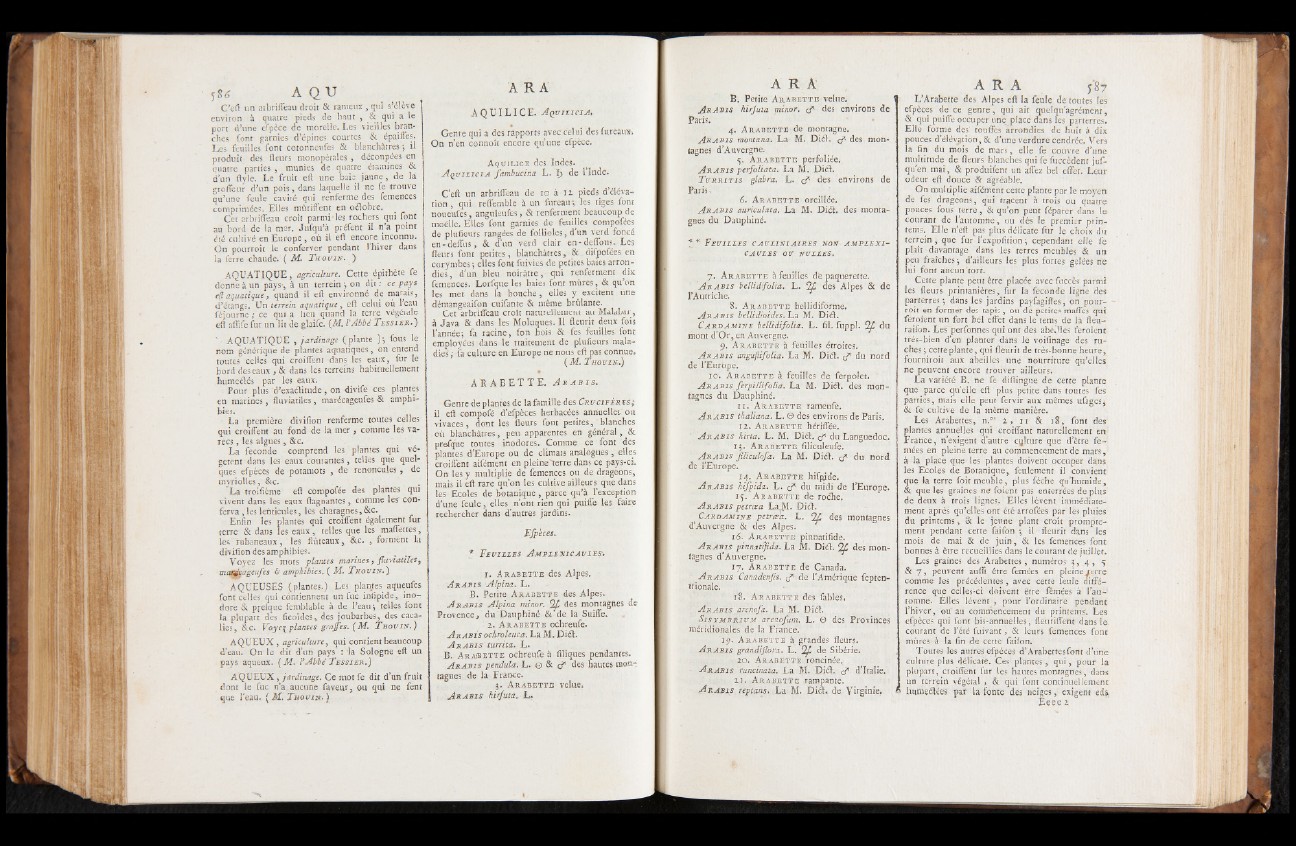 586 AQU
C'eſt un arbriſſeau droit & rameux, qui s'élève
environ à quatre pieds de haut, & qui a le
port d'une eſpèce de morelle. Les vieilles bran-
ches ſont garnies d'épines courtes & épaiſſes.
Les feuilles ſont cotonneuſes & blanchâtres; il
produit des fleurs monopétales, découpées en
quatre parties, munies de quatre étamines &
d'un ſtyle. Le fruit eſt une baie jaune, de la
groſſeur d'un pois, dans laquelle il ne ſe trouve
qu'une ſeule cavité qui renferme des ſemences
comprimées. Elles mûriſſent en octobre.
Cet arbriſſeau croît parmi les rochers qui ſont
au bord de la mer. Juſqu'à préſent il n'a point
été cultivé en Europe, où il eſt encore inconnu.
On pourroit le conſerver pendant l'hiver dans
la ſerre chaude. (M. THOUIN.)
AQUATIQUE, agriculture. Cette épithète ſe
donne à un pays, à un terrein; on dit: ce pays
eſt aquatique, quand il eſt environné de marais,
d'étangs. Un terrein aquatique, eſt celui où l'eau
ſéjourne; ce qui a lieu quand la terre végétale
eſt aſſiſe ſur un lit de glaiſe. (M. l'Abbé TESSIER.)
AQUATIQUE, jardinage (plante); ſous le
nom générique de plantes aquatiques, on entend
toutes celles qui croiſſent dans les eaux, ſur le
bord des eaux, & dans les terreins habituellement
humectés par les eaux.
Pour plus d'exactitude, on diviſe ces plantes
en marines, fluviatiles, marécageuſes & amphi-
bies.
La première diviſion renferme toutes celles
qui croiſſent au fond de la mer, comme les va-
recs, les algues, &c.
La ſeconde comprend les plantes qui vé-
gètent dans les eaux courantes, telles que quel-
ques eſpèces de potamots, de renoncules, de
myriolles, &c.
La troiſième eſt compoſée des plantes qui
vivent dans les eaux ſtagnantes, comme les con-
ferva, les lenticules, les charagnes, &c.
Enfin les plantes qui croiſſent également ſur
terre & dans les eaux, telles que les maſſettes,
les rubaneaux, les flûteaux, &c., forment la
diviſion des amphibies.
Voyez les mots plantes marines, fluviatiles,
marécageuſes & amphibies. (M. THOUIN.)
AQUEUSES (plantes.) Les plantes aqueuſes
ſont celles qui contiennent un ſuc inſipide, ino-
dore & preſque ſemblable à de l'eau; telles ſont
la plupart des ficoïdes, des joubarbes, des caca-
lies, &c. Voyez plantes graſſes. (M. THOUIN.)
AQUEUX, agriculture, qui contient beaucoup
d'eau. On le dit d'un pays: la Sologne eſt un
pays aqueux. (M. l'Abbé TESSIER.)
AQUEUX, jardinage. Ce mot ſe dit d'un fruit
dont le ſuc n'a aucune ſaveur, ou qui ne ſent
que l'eau. (M. THOUIN.)
ARA
AQUILICE. AQUILICIA.
Genre qui a des rapports avec celui des ſureaux.
On n'en connoît encore qu'une eſpèce.
AQUILICE des Indes.
AQUILICIA ſambucina L. ♄ de l'Inde.
C'eſt un arbriſſeau de 10 à 12 pieds d'éléva-
tion, qui reſſemble à un ſureau; les tiges ſont
noueuſes, anguleuſes, & renferment beaucoup de
moëlle. Elles ſont garnies de feuilles compoſées
de pluſieurs rangées de follioles, d'un verd foncé
en-deſſus, & d'un verd clair en-deſſous. Les
fleurs ſont petites, blanchâtres, & diſpoſées en
corymbes; elles ſont ſuivies de petites baies arron-
dies, d'un bleu noirâtre, qui renferment dix
ſemences. Lorſque les baies ſont mûres, & qu'on
les met dans la bouche, elles y excitent une
démangeaiſon cuiſante & même brûlante.
Cet arbriſſeau croît naturellement au Malabar,
à Java & dans les Moluques. Il fleurit deux fois
l'année; ſa racine, ſon bois & ſes feuilles ſont
employées dans le traitement de pluſieurs mala-
dies; ſa culture en Europe ne nous eſt pas connue.
(M. THOUIN.)
ARABETTE. ARABIS.
Genre de plantes de la famille des CRUCIFÈRES;
il eſt compoſé d'eſpèces herbacées annuelles ou
vivaces, dont les fleurs ſont petites, blanches
ou blanchâtres, peu apparentes en général, &
preſque toutes inodores. Comme ce ſont des
plantes d'Europe ou de climats analogues, elles
croiſſent aiſément en pleine terre dans ce pays-ci.
On les y multiplie de ſemences ou de drageons,
mais il eſt rare qu'on les cultive ailleurs que dans
les Ecoles de botanique, parce qu'à l'exception
d'une ſeule, elles n'ont rien qui puiſſe les faire
rechercher dans d'autres jardins.
Eſpèces.
* FEUILLES AMPLEXICAULES.
1. ARABETTE des Alpes.
ARABIS Alpina. L.
B. Petite ARABETTE des Alpes.
ARABIS Alpina minor. ♃ des montagnes de
Provence, du Dauphiné & de la Suiſſe.
2. ARABETTE ochreuſe.
ARABIS ochroleuca. La M. Dict.
ARABIS turrita. L.
B. ARABETTE ochreuſe à ſiliques pendantes.
ARABIS pendula. L. ☉ & ♂ des hautes mon-
tagnes de la France.
3. ARABETTE velue.
ARABIS hirſuta. L.
ARA
B. Petite ARABETTE velue.
ARABIS hirſuta minor. ♂ des environs de
Paris.
4. ARABETTE de montagne.
ARABIS montana. La M. Dict. ♂ des mon-
tagnes d'Auvergne.
5. ARABETTE perfoliée.
ARABIS perfoliata. La M. Dict.
TURRITIS glabra. L. ♂ des environs de
Paris.
6. ARABETTE oreillée.
ARABIS auriculata. La M. Dict. des monta-
gnes du Dauphiné.
** FEUILLES CAULINIAIRES NON AMPLEXI-
CAULES OU NULLES.
7. ARABETTE à feuilles de paquerette.
ARABIS bellidifolia. L. ♃ des Alpes & de
l'Autriche.
8. ARABETTE bellidiforme.
ARABIS bellidioides. La M. Dict.
CARDAMINE bellidifolia. L. fil. ſuppl. ♃ du
mont d'Or, en Auvergne.
9. ARABETTE à feuilles étroites.
ARABIS anguſtifolia. La M. Dict. ♂ du nord
de l'Europe.
10. ARABETTE à feuilles de ſerpolet.
ARABIS ſerpillifolia. La M. Dict. des mon-
tagnes du Dauphiné.
11. ARABETTE rameuſe.
ARABIS thaliana. L. ☉ des environs de Paris.
12. ARABETTE hériſſée.
ARABIS hirta. L. M. Dict. ♂ du Languedoc.
13. ARABETTE ſiliculeuſe.
ARABIS ſiliculoſa. La M. Dict. ♂ du nord
de l'Europe.
14. ARABETTE hiſpide.
ARABIS hiſpida. L. ♂ du midi de l'Europe.
15. ARABETTE de roche.
ARABIS petræa La M. Dict.
CARDAMINE petræa. L. ♃ des montagnes
d'Auvergne & des Alpes.
16. ARABETTE pinnatifide.
ARABIS pinnatifida. La M. Dict. ♃ des mon-
tagnes d'Auvergne.
17. ARABETTE de Canada.
ARABIS Canadenſis. ♂ de l'Amérique ſepten-
trionale.
18. ARABETTE des ſables.
ARABIS arenoſa. La M. Dict.
SISYMBRIUM arenoſum. L. ☉ des Provinces
méridionales de la France.
19. ARABETTE à grandes fleurs.
ARABIS grandiflora. L. ♃ de Sibérie.
20. ARABETTE roncinée.
ARABIS runcinata. La M. Dict. ♂ d'Italie.
21. ARABETTE rampante.
ARABIS reptans. La M. Dict. de Virginie.
ARA 587
L'Arabette des Alpes eſt la ſeule de toutes les
eſpèces de ce genre, qui ait quelqu'agrément,
& qui puiſſe occuper une place dans les parterres.
Elle forme des touffes arrondies de huit à dix
pouces d'élévation, & d'une verdure cendrée. Vers
la fin du mois de mars, elle ſe couvre d'une
multitude de fleurs blanches qui ſe ſuccèdent juſ-
qu'en mai, & produiſent un aſſez bel effet. Leur
odeur eſt douce & agréable.
On multiplie aiſément cette plante par le moyen
de ſes drageons, qui tracent à trois ou quatre
pouces ſous terre, & qu'on peut ſéparer dans le
courant de l'automne, ou dès le premier prin-
tems. Elle n'eſt pas plus délicate ſur le choix du
terrein, que ſur l'expoſition, cependant elle ſe
plaît davantage dans les terres meubles & un
peu fraîches; d'ailleurs les plus fortes gelées ne
lui font aucun tort.
Cette plante peut être placée avec ſuccès parmi
les fleurs printanières, ſur la ſeconde ligne des
parterres; dans les jardins payſagiſtes, on pour-
roit en former des tapis, ou de petites maſſes qui
feroient un fort bel effet dans le tems de ſa fleu-
raiſon. Les perſonnes qui ont des abeilles feroient
très-bien d'en planter dans le voiſinage des ru-
ches; cette plante, qui fleurit de très-bonne heure,
fourniroit aux abeilles une nourriture qu'elles
ne peuvent encore trouver ailleurs.
La variété B. ne ſe diſtingue de cette plante
que parce qu'elle eſt plus petite dans toutes ſes
parties, mais elle peut ſervir aux mêmes uſages,
& ſe cultive de la même manière.
Les Arabettes, n.os 2, 11 & 18, ſont des
plantes annuelles qui croiſſent naturellement en
France, n'exigent d'autre culture que d'être ſe-
mées en pleine terre au commencement de mars,
à la place que les plantes doivent occuper dans
les Ecoles de Botanique, ſeulement il convient
que la terre ſoit meuble, plus ſèche qu'humide,
& que les graines ne ſoient pas enterrées de plus
de deux à trois lignes. Elles lèvent immédiate-
ment après qu'elles ont été arroſées par les pluies
du printems, & le jeune plant croît prompte-
ment pendant cette ſaiſon; il fleurit dans les
mois de mai & de juin, & les ſemences ſont
bonnes à être recueillies dans le courant de juillet.
Les graines des Arabettes, numéros 3, 4, 5
& 7, peuvent auſſi être ſemées en pleine terre
comme les précédentes, avec cette ſeule diffé-
rence que celles-ci doivent être ſemées à l'au-
tomne. Elles lèvent, pour l'ordinaire pendant
l'hiver, ou au commencement du printems. Les
eſpèces qui ſont bis-annuelles, fleuriſſent dans le
courant de l'été ſuivant, & leurs ſemences ſont
mûres à la fin de cette ſaiſon.
Toutes les autres eſpèces d'Arabettes ſont d'une
culture plus délicate. Ces plantes, qui, pour la
plupart, croiſſent ſur les hautes montagnes, dans
un terrein végétal, & qui ſont continuellement
humectées par la fonte des neiges, exigent
Eeee 2